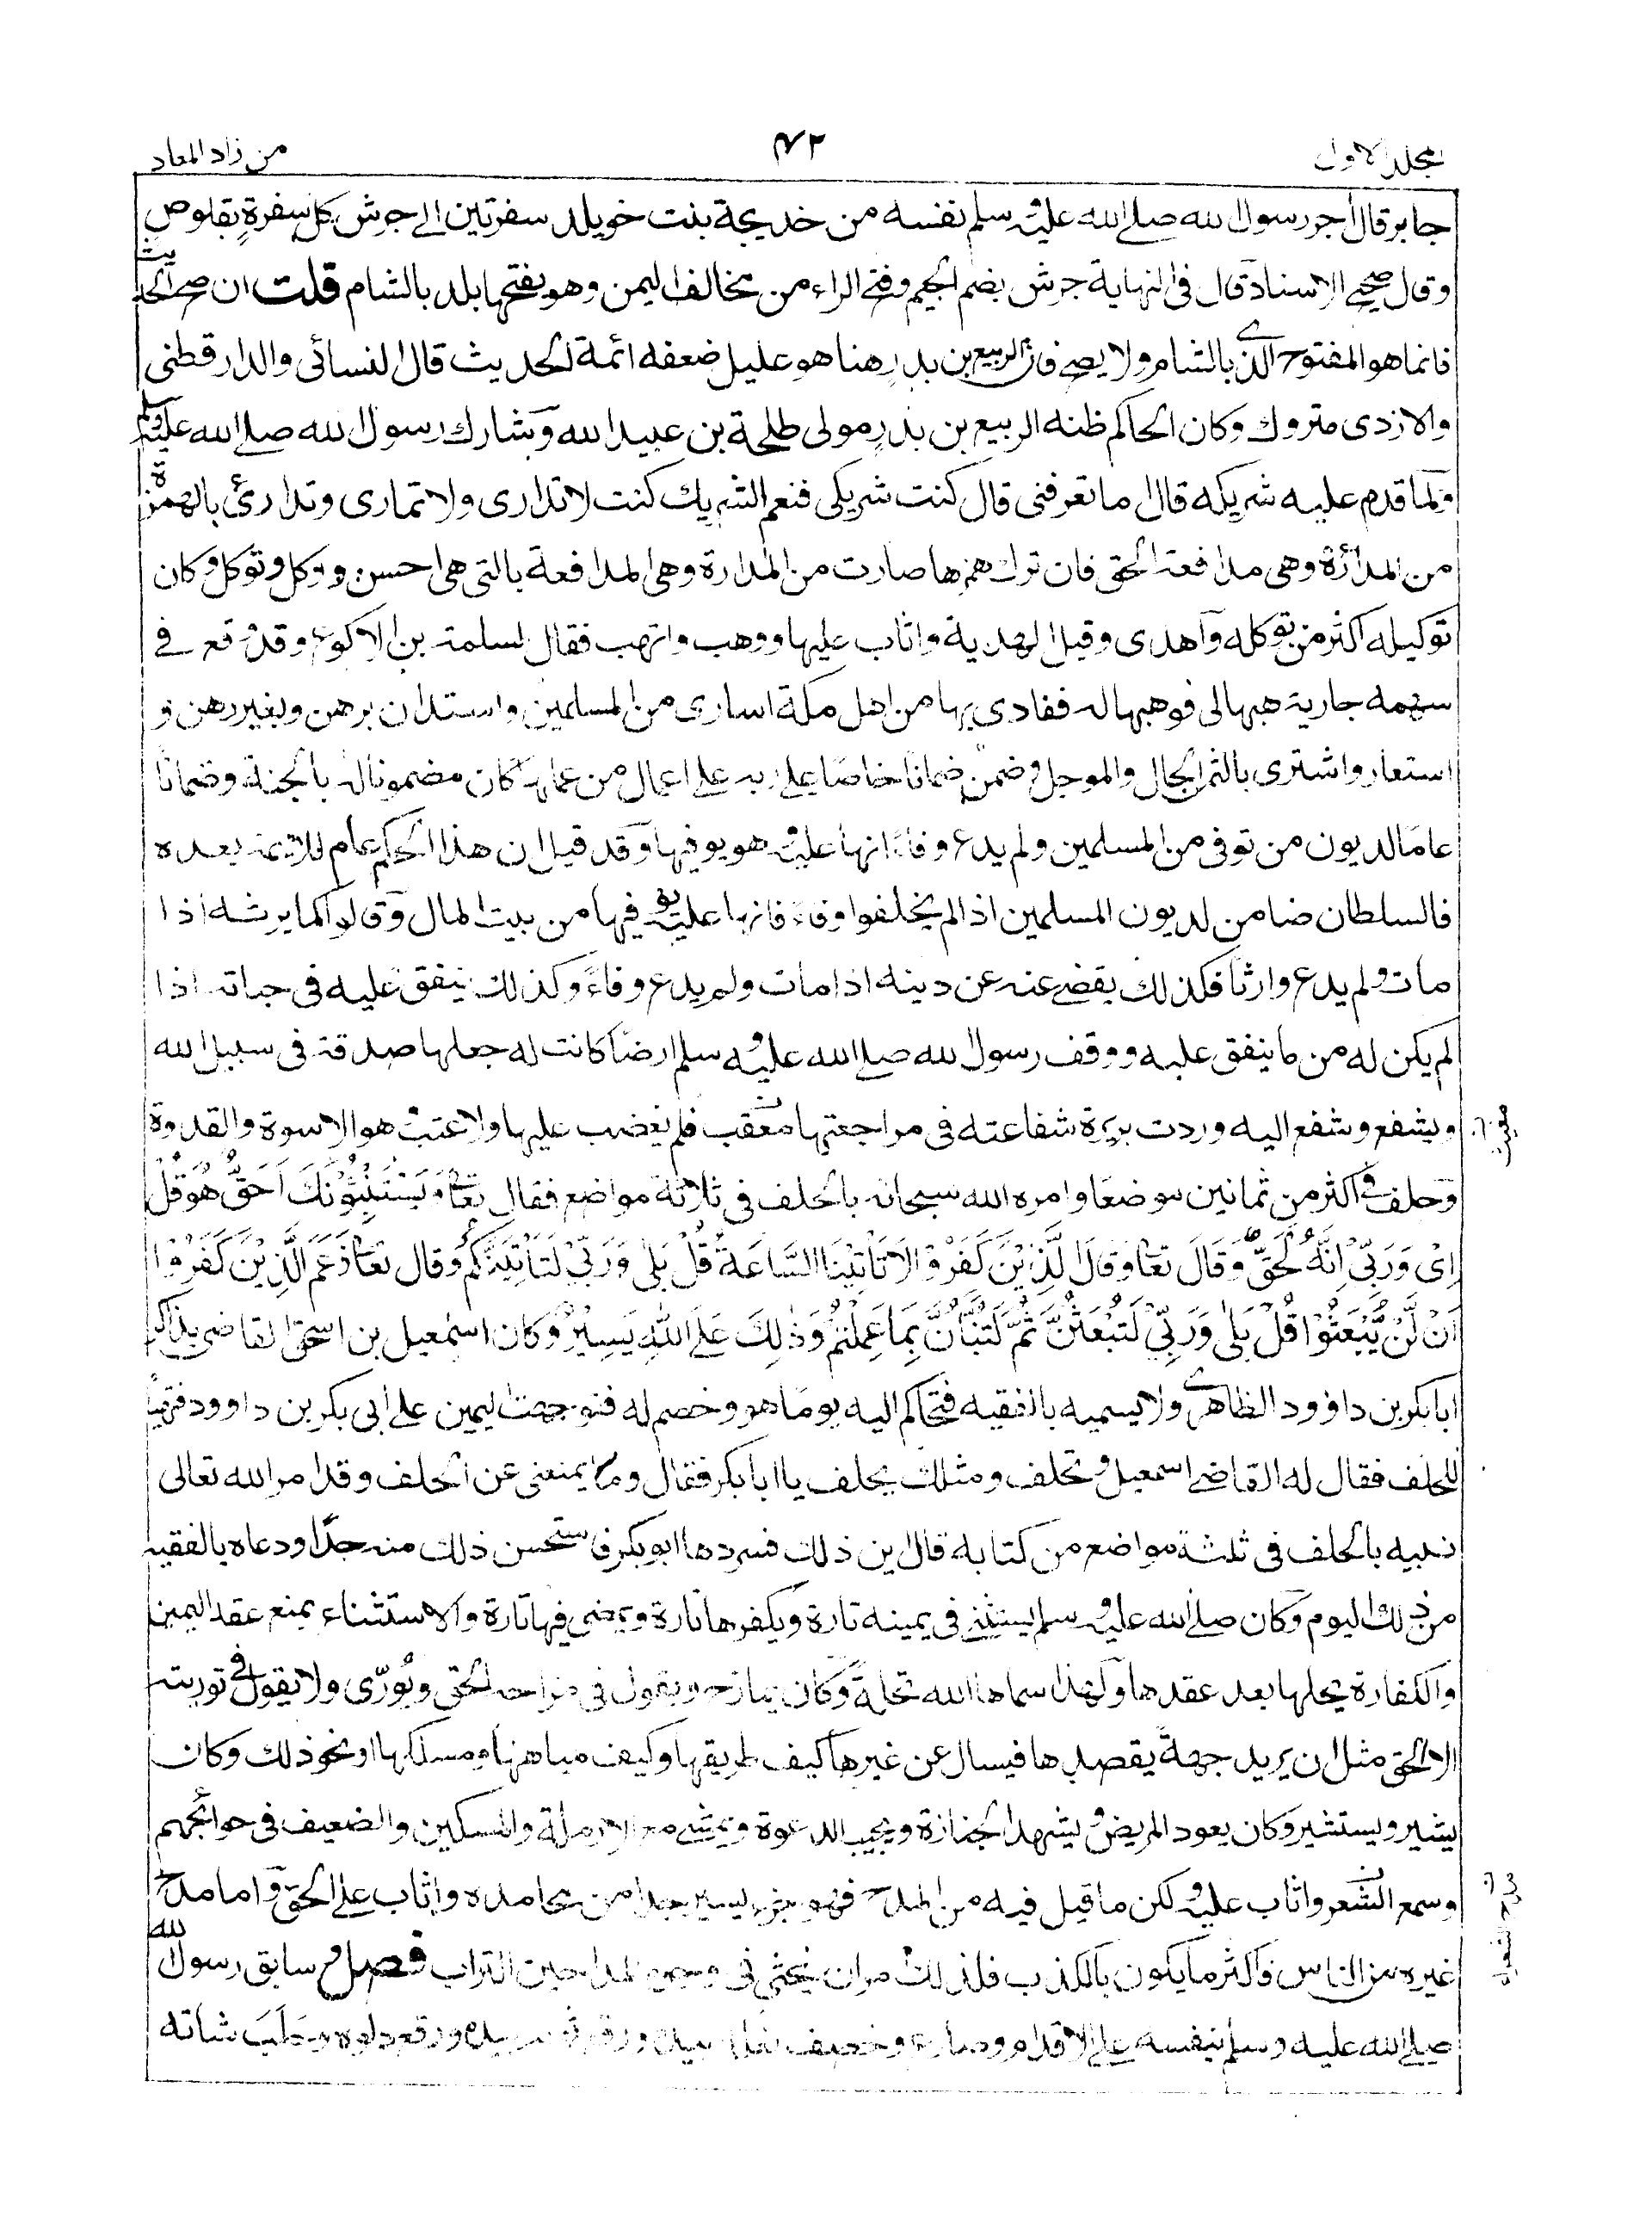 مجلد الاول
٤٢
من زاد المعاد
جابر قال اجر رسول الله صلى الله عليه وسلم نفسه من خديجة بنت خويلد سفرتين الى جرش كل سفرةٍ بقلوص
وقال صحيح الاسناد قال فى النهاية جرش بضم الجيم وفتح الراء من مخاليف اليمن وهو بفتحها بلد بالشام قلت ان صح الحديث
فانما هو المفتوح الذى بالشام ولا يصح فان الربيع بن بدر هنا هو عليل ضعفه ائمة الحديث قال النسائى والدارقطنى
والازدى متروك وكان الحاكم ظنه الربيع بن بدر مولى طلحة بن عبيد الله وشارك رسول الله صلى الله عليه وسلم
ولما قدم عليه شريكه قال اما تعرفنى قال كنت شريكى فنعم الشريك كنت لا تدارى ولا تمارى وتدارئ بالهمزة
من المدارئة وهى مدافعة الحق فان ترك همزها صارت من المدارة وهى المدافعة بالتى هى احسن ووكل وتوكل وكان
توكيله اكثر من توكله واهدى وقبل الهدية واثاب عليها ووهب واتهب فقال لسلمة بن الاكوع وقد وقع فى
سهمه جارية هبها لى فوهبها له ففادى بها من اهل مكة اسارى من المسلمين واستدان برهن وبغير رهن و
استعار واشترى بالثمن الحال والموجل وضمن ضمانا خاصًا على ربه على اعمال من عملها كان مضمونا له بالجنة وضمانا
عاما لديون من توفى من المسلمين ولم يدع وفاءً انها عليه وهو يوفيها وقد قيل ان هذا الحكم عام للائمة بعده
فالسلطان ضامن لديون المسلمين اذا لم يخلفوا وفاء فانها عليه يوفيها من بيت المال وقالوا كما يرثه اذا
مات ولم يدع وارثًا فكذلك يقضى عنه عن دينه اذا مات ولم يدع وفاءً وكذلك ينفق عليه فى حياته اذا
لم يكن له من ما ينفق عليه ووقف رسول الله صلى الله عليه وسلم ارضا كانت له جعلها صدقة فى سبيل الله
ويشفع وشفع اليه وردت بريرة شفاعته فى مراجعتها مغيث فلم يغضب عليها ولا عتب وهو الاسوة والقدوة
وحلف فى اكثر من ثمانين موضعًا وامره الله سبحانه بالحلف فى ثلاثة مواضع فقال تعالى وَيَسْتَنْبِئُوْنَكَ اَحَقٌّ هُوَ قُلْ
اِىْ وَرَبِّىْ اِنَّهٗ لَحَقٌّ وَقَالَ تعالى وَقَالَ الَّذِيْنَ كَفَرُوْا لَا تَاْتِيْنَا السَّاعَةُ قُلْ بَلٰى وَرَبِّىْ لَتَاْتِيَنَّكُمْ وقال تعالى زَعَمَ الَّذِيْنَ كَفَرُوْا
اَنْ لَّنْ يُّبْعَثُوْا قُلْ بَلٰى وَرَبِّىْ لَتُبْعَثُنَّ ثُمَّ لَتُنَبَّؤُنَّ بِمَا عَمِلْتُمْ وَذٰلِكَ عَلَى اللّٰهِ يَسِيْرٌ وكان اسمٰعيل بن اسحق القاضى يذاكر
ابا بكر بن داؤود الظاهرى ولا يسميه بالفقيه فتحاكم اليه يومًا هو وخصم له فتوجهت اليمين على ابى بكر بن داوود فتهيأ
للحلف فقال له القاضى اسمعيل وتحلف ومثلك يحلف يا ابا بكر فقال وما يمنعنى عن الحلف وقد امر الله تعالى
نبيه بالحلف فى ثلثة مواضع من كتابه قال اين ذلك فسردها ابو بكر فاستحسن ذلك منه جدًا ودعاه بالفقيه
من ذلك اليوم وكان صلى الله عليه وسلم يستثنى فى يمينه تارة ويكفرها تارة ويمضى فيها تارة والاستثناء يمنع عقد اليمين
والكفارة يحلها بعد عقدها ولهذا سماها الله تحلة وكان يمازح ويقول فى مزاحه الحق ويُوَرّى ولا يقول فى توريته
الا الحق مثل ان يريد جهةً يقصدها فيسال عن غيرها كيف طريقها وكيف مياهها ومسلكها او نحو ذلك وكان
يشير ويستشير وكان يعود المريض ويشهد الجنازة ويجيب الدعوة ويمشى مع الارملة والمسكين والضعيف فى حوائجهم
وسمع الشعر واثاب عليه ولكن ما قيل فيه من المدح فهو جزء يسير جدا من محامده واثاب على الحق واما مدح
غيره من الناس فاكثر ما يكون بالكذب فلذلك امر ان يحثى فى وجوه المداحين التراب فصل وسابق رسول الله
صلى الله عليه وسلم بنفسه على الاقدام وصارع وخصف نعله بيده ورقع ثوبه بيده ورقع دلوه وحَلَبَ شاته